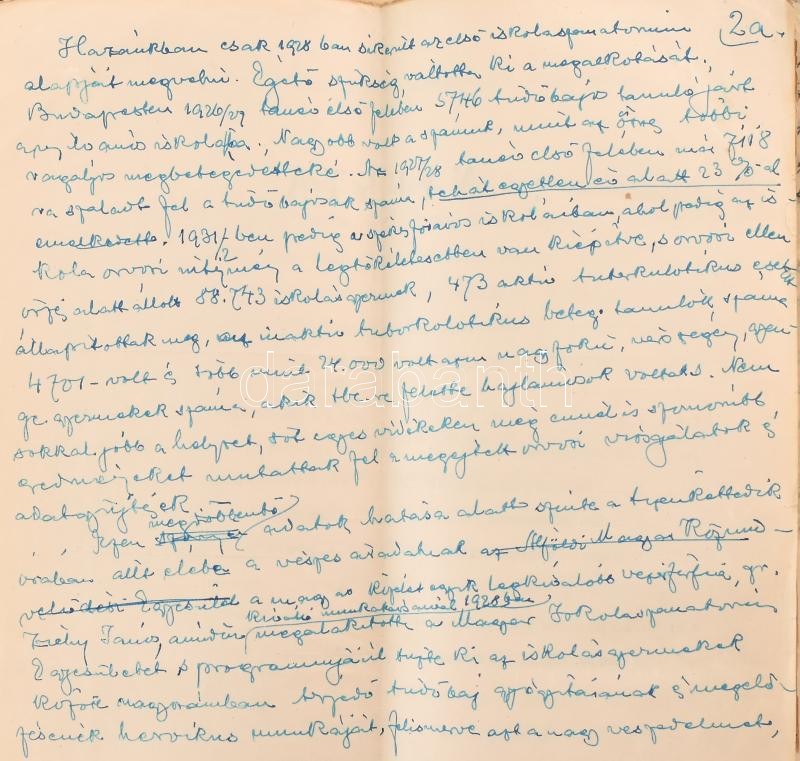 2a.
Hazánkban csak 1928 ban sikerült az első iskolaszanatorium
alapját megvetni. Égető szükség váltotta ki a megalkotását.
Budapesten 1926/27 tanév első felében 5746 tüdőbajos tanuló járt
iskolába. Nagyobb volt a számuk, mint az összes többi
ragályos megbetegedetteké. Az 1927/28 tanév első felében már 7118
ra szaladt fel a tüdőbajosak száma, tehát egyetlen év alatt 23 %-al
emelkedett. 1931/ ben pedig a székesfőváros iskoláiban, ahol pedig az is-
kola orvosi intézmény a legtökéletesebben van kiépítve, s orvosi ellen
őrzés alatt állott 88.743 iskolásgyermek, 473 aktiv tuberkulotikus esetet
állapítottak meg, az inaktiv tuberkolotikus beteg tanulók száma
4701 - volt és több mint 24.000 volt azon nagyfokú, vérszegény, gyen
ge gyermekek száma, akik tbc. re felette hajlamosok voltak. Nem
sokkal jobb a helyzet, sőt egyes vidékeken még ennél is szomorúbb
eredményeket mutattak fel a megejtett orvosi vizsgálatok és
adatgyűjtések.
megdöbbentő
Ezen adatok hatása alatt szinte a tizenkettedik
órában állt elébe a vészes áradatnak az Alföldi Magyar Közmű-
velődési Egyesület a magyar közélet egyik legkiválóbb vezérférfia, gr.
kiváló munkatársaival 1928 ban
Zichy János, amidőn megalakította a Magyar Iskolaszanatorium
Egyesületet s programmjául tűzte ki az iskolásgyermekek
között nagyarányban terjedő tüdőbaj gyógyításának és megelő-
zésének heroikus munkáját, felismerve azt a nagy veszedelmet,
darabanth